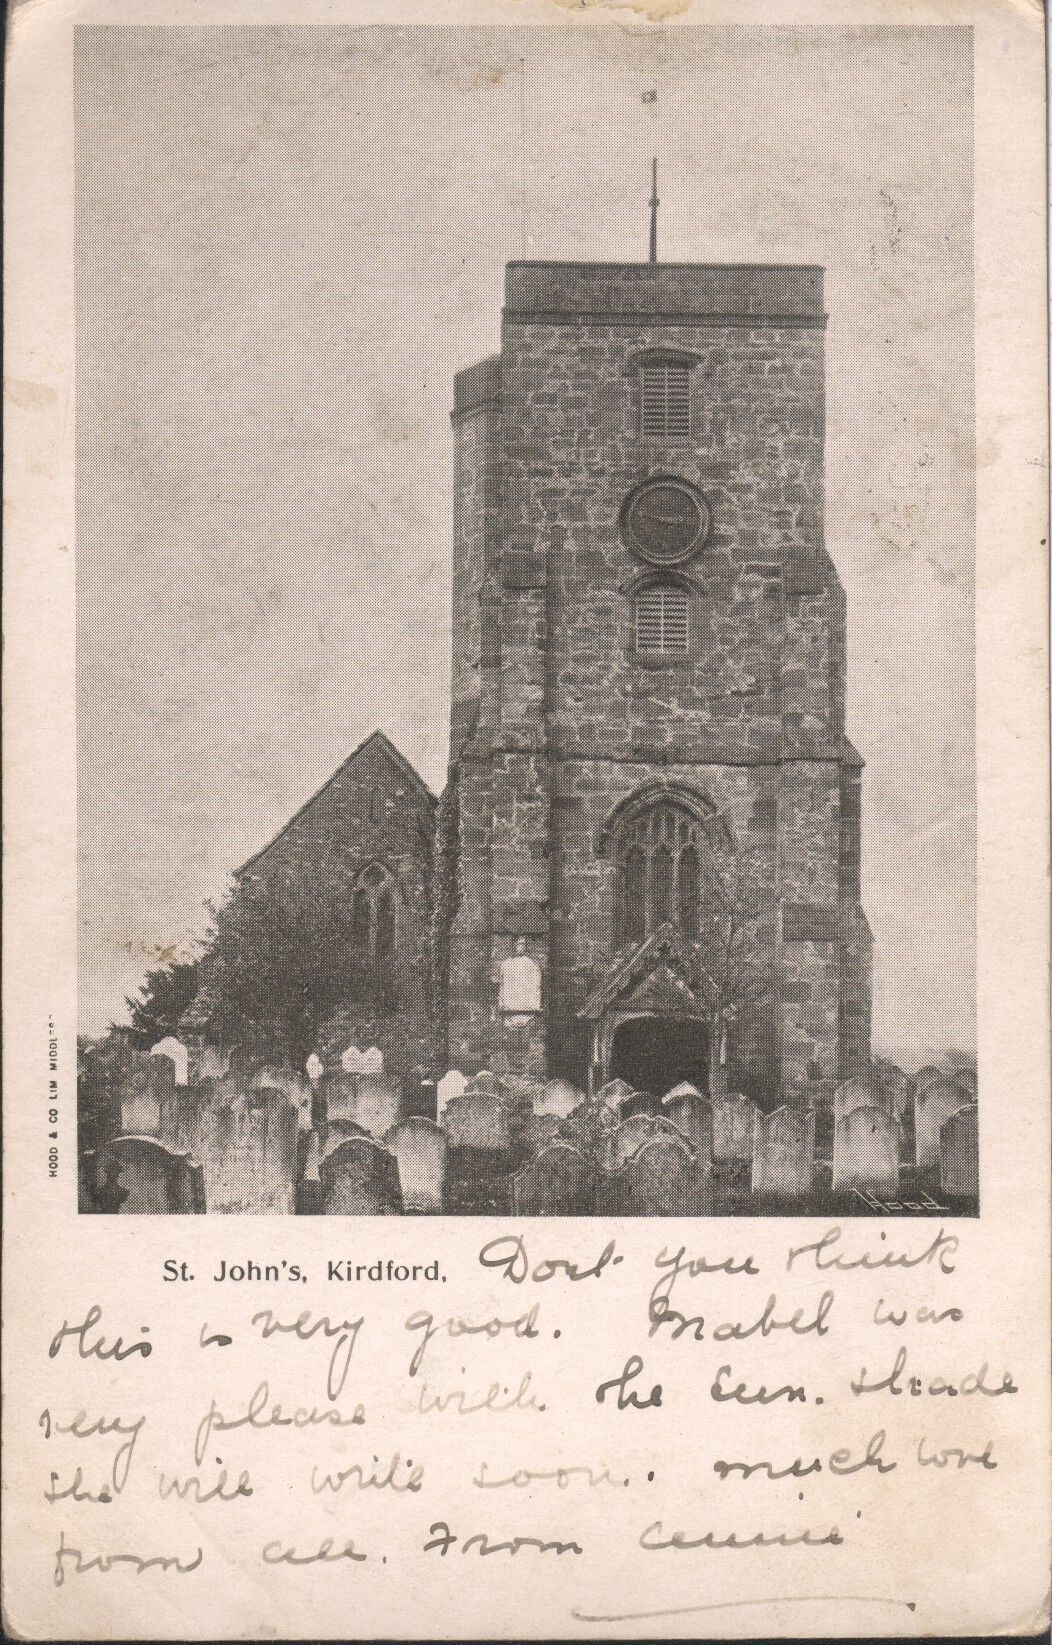 HOOD & CO LIM MIDDLES
Hood
St. John's, Kirdford. Dont you think
this is very good. Mabel was
very please with the Sun. shade
she will write soon. much love
from all. From Annie